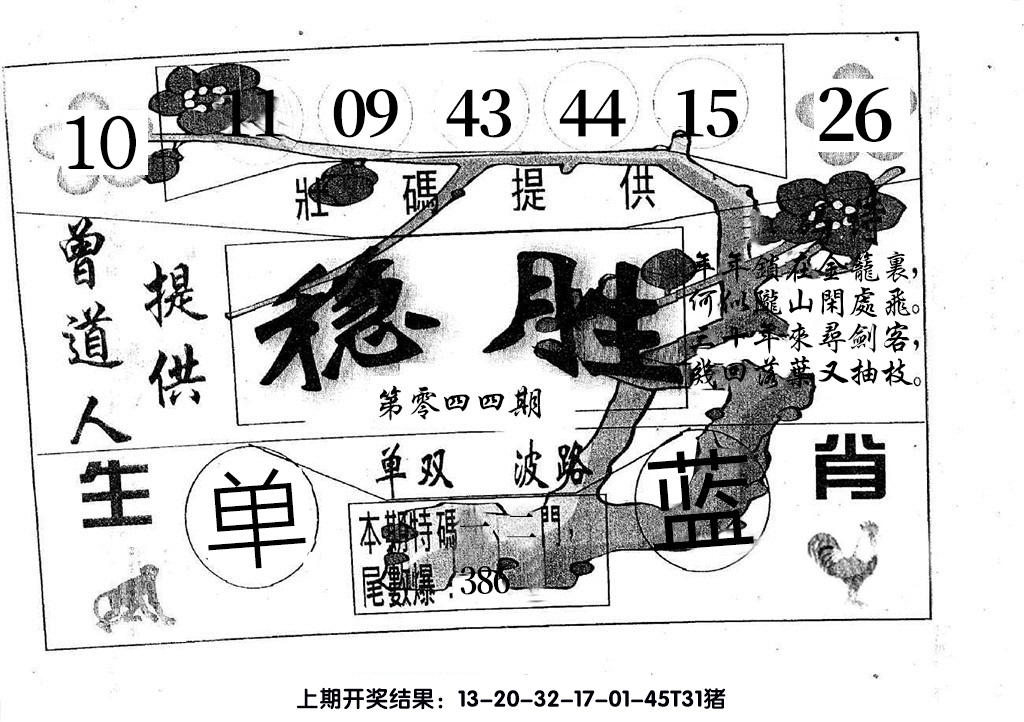 10 11 09 43 44 15 26
壯碼提供
曾道人
提供
稳胜
第零四四期
年年鎖在金籠裏，
何似隴山閑處飛。
三十年來尋劍客，
幾回落葉又抽枝。
单双 波路
生肖
单
蓝
本期特碼一、二門，
尾數爆：386
上期开奖结果：13-20-32-17-01-45T31猪